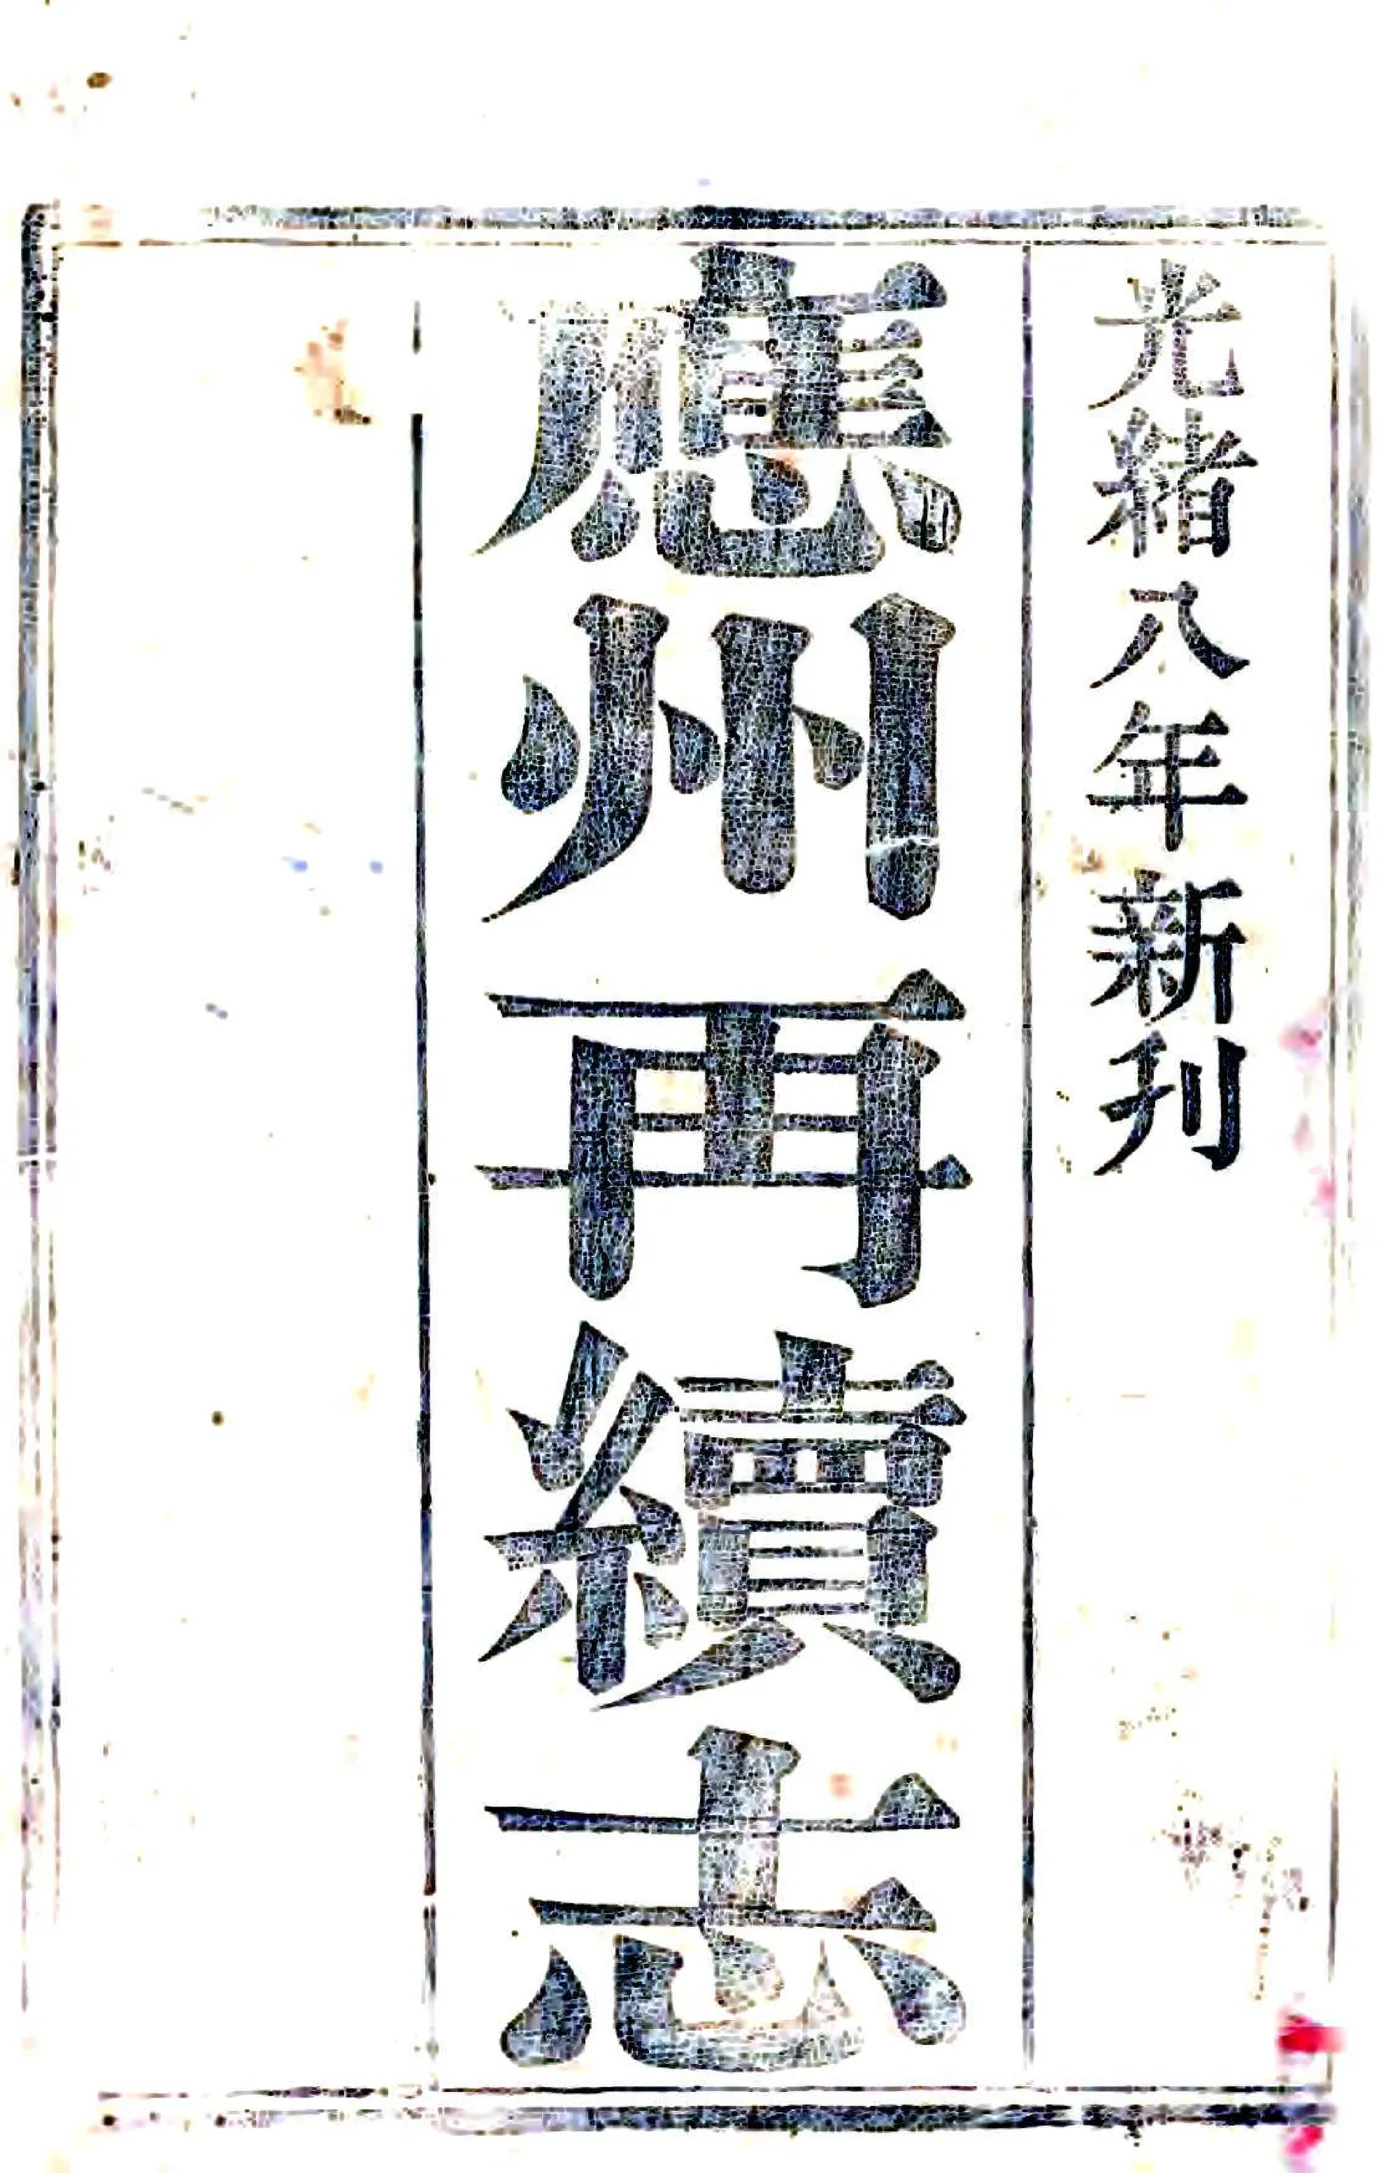 光緒八年新刊
應州再續志